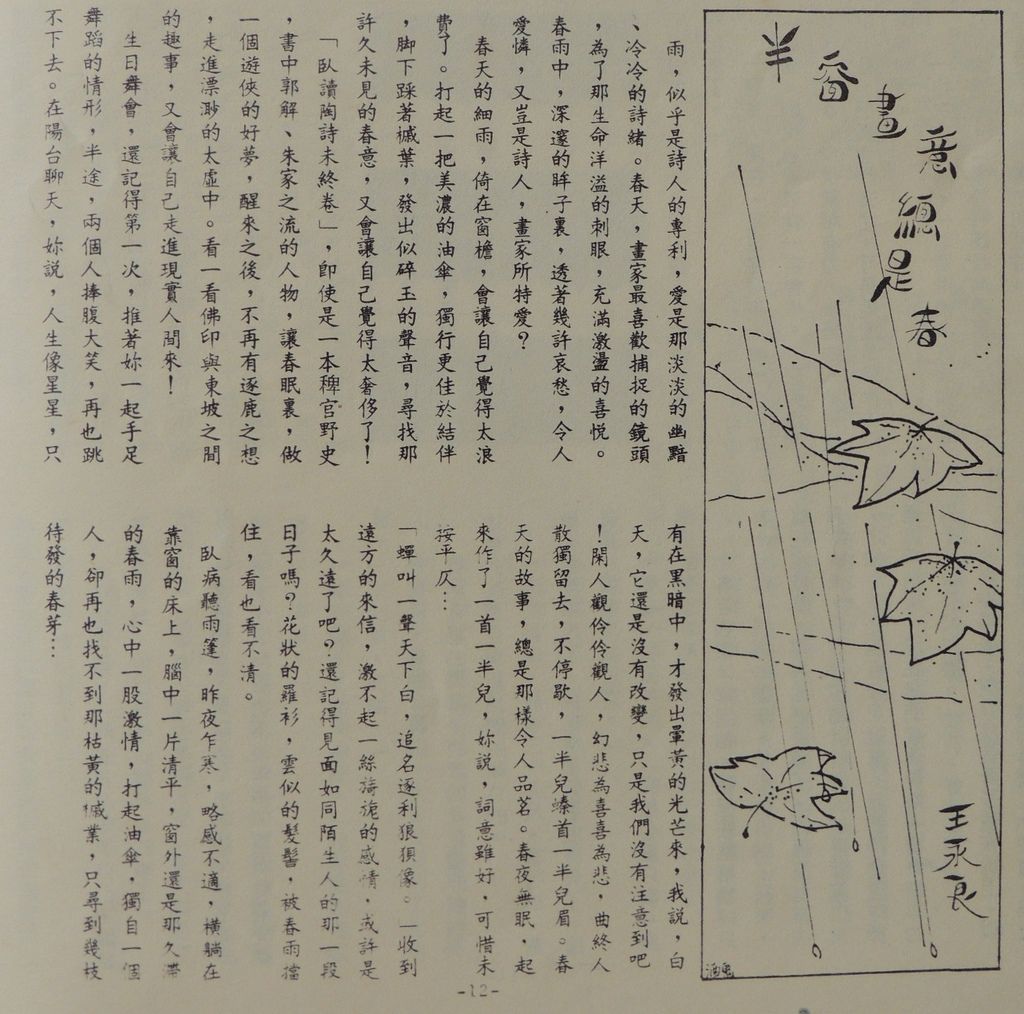 半窗畫意總是春
王永良
雨，似乎是詩人的專利，愛是那淡淡的幽黯
、冷冷的詩緒。春天，畫家最喜歡捕捉的鏡頭
，為了那生命洋溢的刺眼，充滿激盪的喜悅。
春雨中，深邃的眸子裏，透著幾許哀愁，令人
愛憐，又豈是詩人，畫家所特愛？
春天的細雨，倚在窗檐，會讓自己覺得太浪
費了。打起一把美濃的油傘，獨行更佳於結伴
，腳下踩著槭葉，發出似碎玉的聲音，尋找那
許久未見的春意，又會讓自己覺得太奢侈了！
「臥讀陶詩未終卷」，即使是一本稗官野史
，書中郭解、朱家之流的人物，讓春眠裏，做
一個遊俠的好夢，醒來之後，不再有逐鹿之想
，走進漂渺的太虛中。看一看佛印與東坡之間
的趣事，又會讓自己走進現實人間來！
生日舞會，還記得第一次，推著妳一起手足
舞蹈的情形，半途，兩個人捧腹大笑，再也跳
不下去。在陽台聊天，妳說，人生像星星，只
有在黑暗中，才發出暈黃的光芒來，我說，白
天，它還是沒有改變，只是我們沒有注意到吧
！閑人觀伶伶觀人，幻悲為喜喜為悲，曲終人
散獨留去，不停歇，一半兒螓首一半兒眉。春
天的故事，總是那樣令人品茗。春夜無眠，起
來作了一首一半兒，妳說，詞意雖好，可惜未
按平仄…
「蟬叫一聲天下白，追名逐利狼狽像。」收到
遠方的來信，激不起一絲旖旎的感情，或許是
太久遠了吧？還記得見面如同陌生人的那一段
日子嗎？花狀的羅衫，雲似的髮髻，被春雨擋
住，看也看不清。
臥病聽雨篷，昨夜乍寒，略感不適，橫躺在
靠窗的床上，腦中一片清平，窗外還是那久滯
的春雨，心中一股激情，打起油傘，獨自一個
人，卻再也找不到那枯黃的槭業，只尋到幾枝
待發的春芽…
-12-